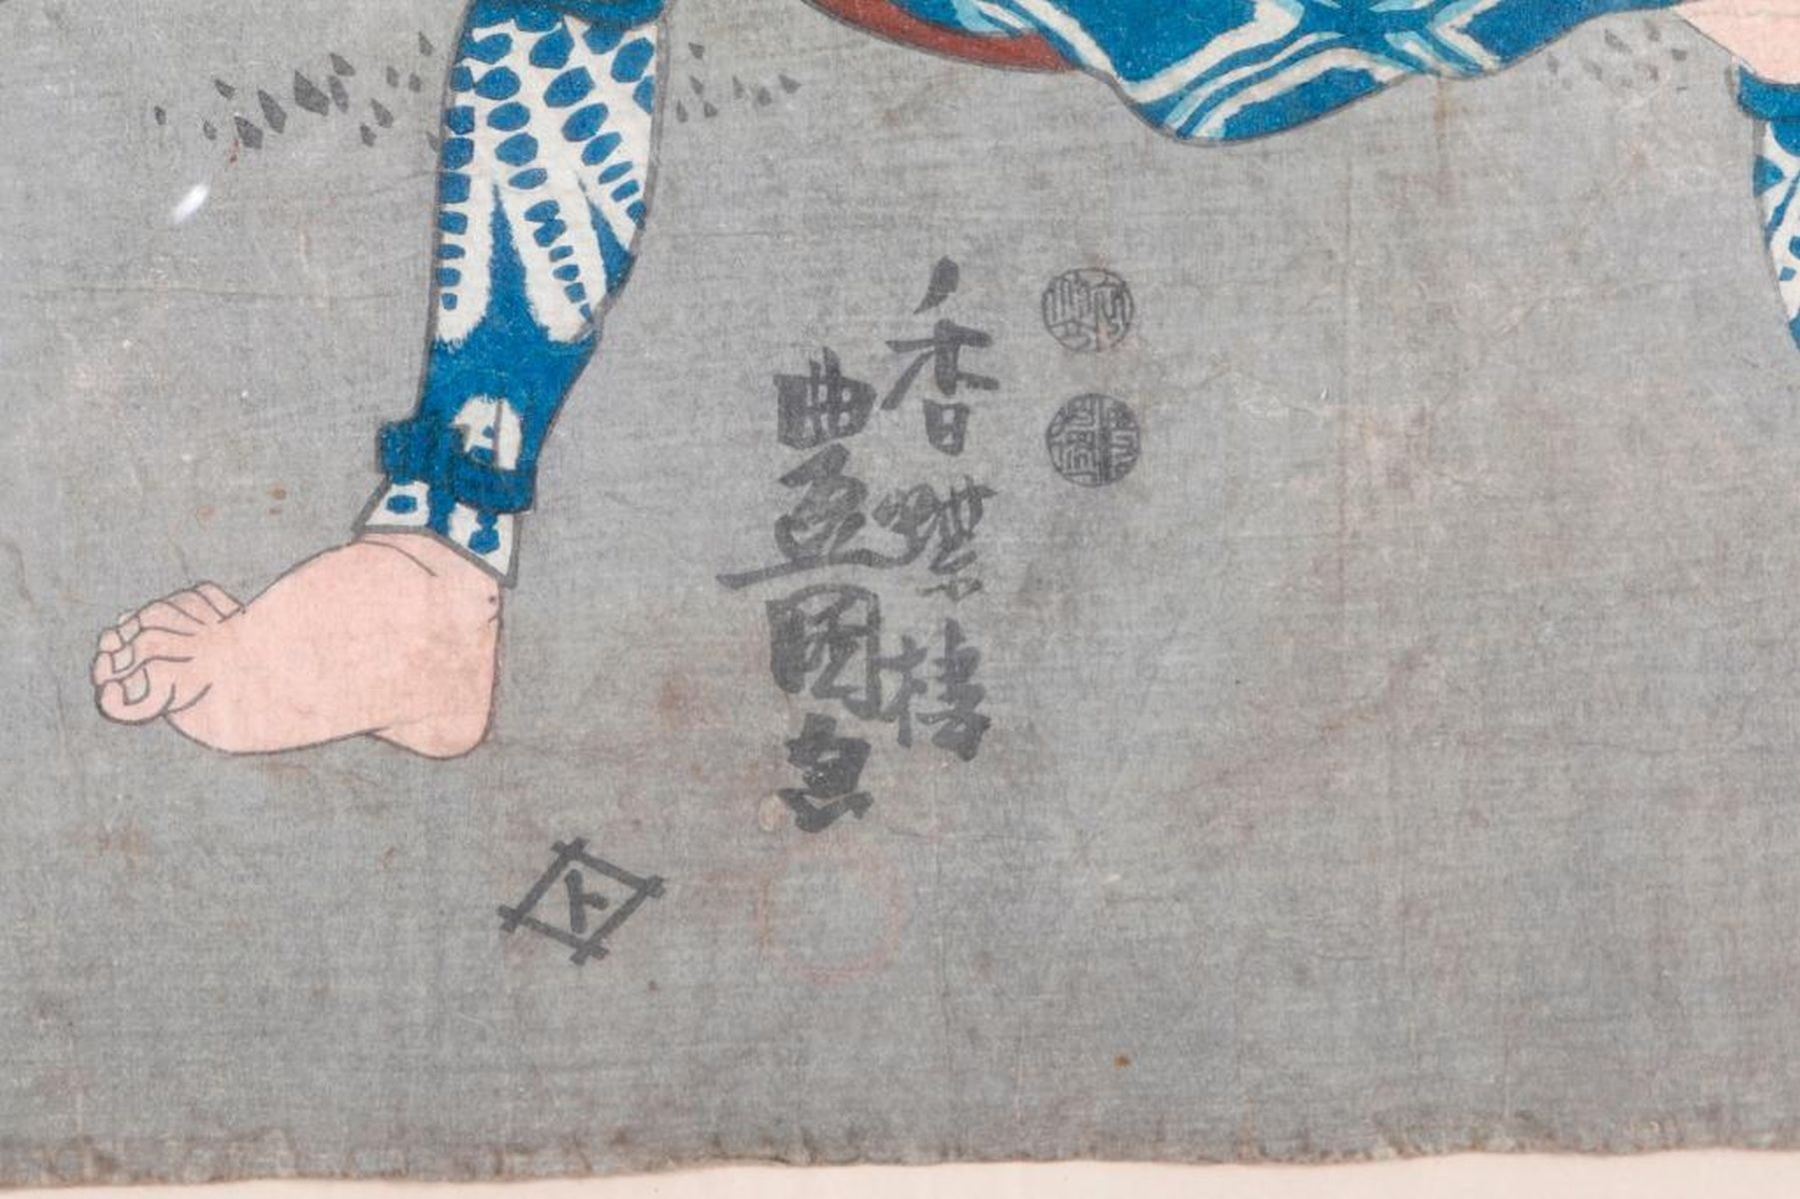 香蝶楼
豊国画
ト